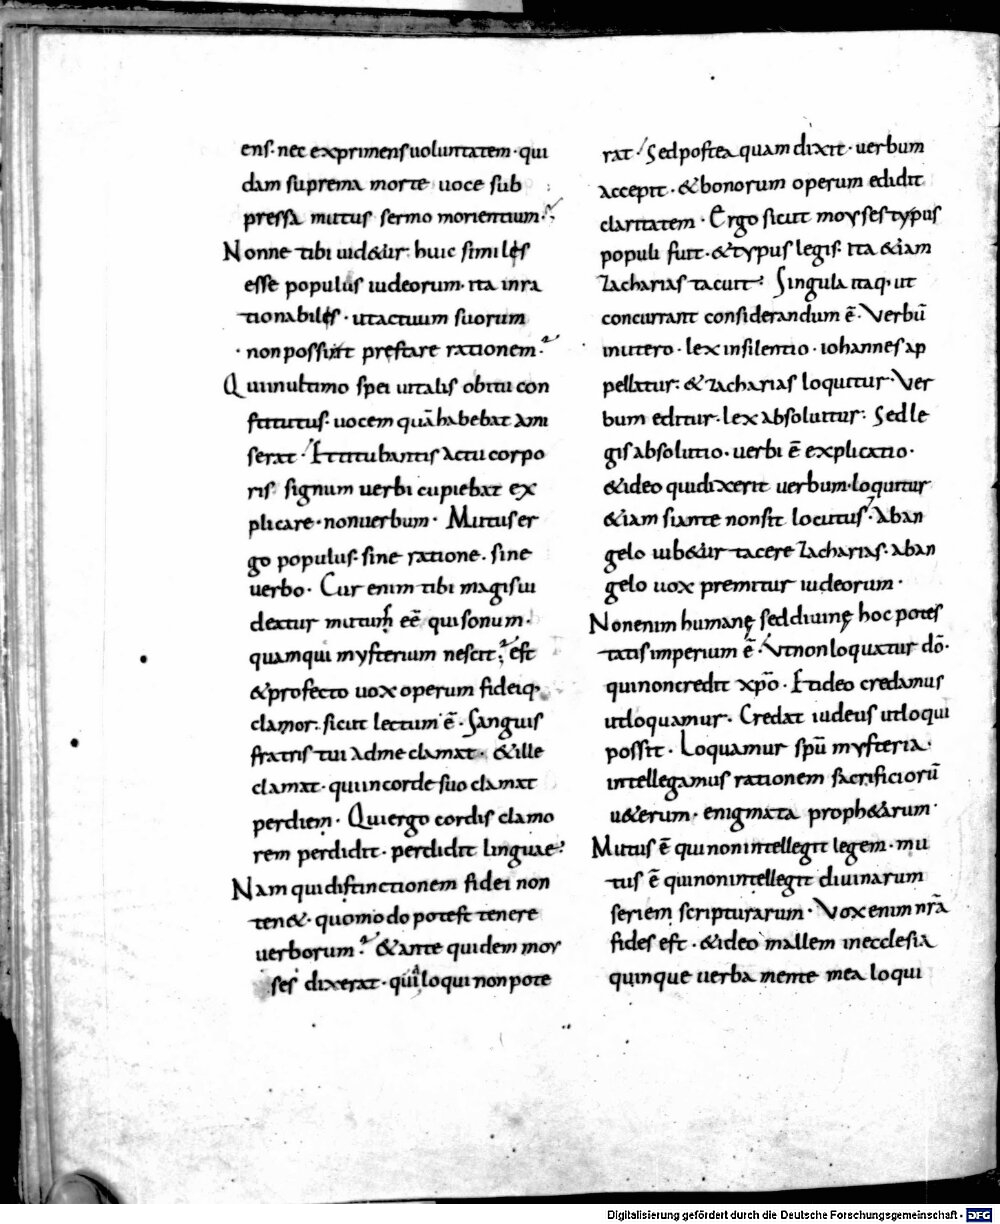 ens· nec exprimens uoluntatem· qui
dam suprema morte uoce sub
pressa mutus sermo morientium·
Nonne tibi uid&ur huic similes
esse populus iudeorum· ita inra
tionabiles· ut actuum suorum
non possint prestare rationem·
Qui in ultimo spei uitalis obitu con
stitutus· uocem quā habebat ami
serat· Et titubantis actu corpo
ris signum uerbi cupiebat ex
plicare· non uerbum· Mutus er
go populus· sine ratione· sine
uerbo· Cur enim tibi magis ui
deatur mutum eē qui sonum·
quam qui mysterium nescit· est
& profecto uox operum fideiq·
clamor· sicut lectum ē· Sanguis
fratris tui ad me clamat· & ille
clamat· qui in corde suo clamat
per diem· Qui ergo cordis clamo
rem perdidit· perdidit linguae?
Nam qui distinctionem fidei non
ten&· quomodo potest tenere
uerborum? & ante quidem moy
ses dixerat· quia loqui non pote
rat· Sed postea quam dixit· uerbum
accepit· & bonorum operum edidit
claritatem· Ergo sicut moyses typus
populi fuit· & typus legis· ita & iam
Zacharias tacuit· Singula itaq· ut
concurrant considerandum ē· Verbū
in utero· lex in silentio· iohannes ap
pellatur· & zacharias loquitur· Ver
bum editur· lex absoluitur· Sed le
gis absolutio· uerbi ē explicatio·
& ideo qui dixerit uerbum· loquitur
& iam si ante non sit locutus· Ab an
gelo iub&ur tacere Zacharias· ab an
gelo uox premitur iudeorum·
Non enim humanę sed diuinę hoc potes
tatis imperium ē· Vt non loquatur dō·
qui non credit xp̄o· Et ideo credamus
ut loquamur· Credat iudeus ut loqui
possit· Loquamur spū mysteria·
intellegamus rationem sacrificiorū
u&erum· enigmata proph&arum·
Mutus ē qui non intellegit legem· mu
tus ē qui non intellegit diuinarum
seriem scripturarum· Vox enim nr̄a
fides est· & ideo mallem in ecclesia
quinque uerba mente mea loqui
Digitalisierung gefördert durch die Deutsche Forschungsgemeinschaft - DFG